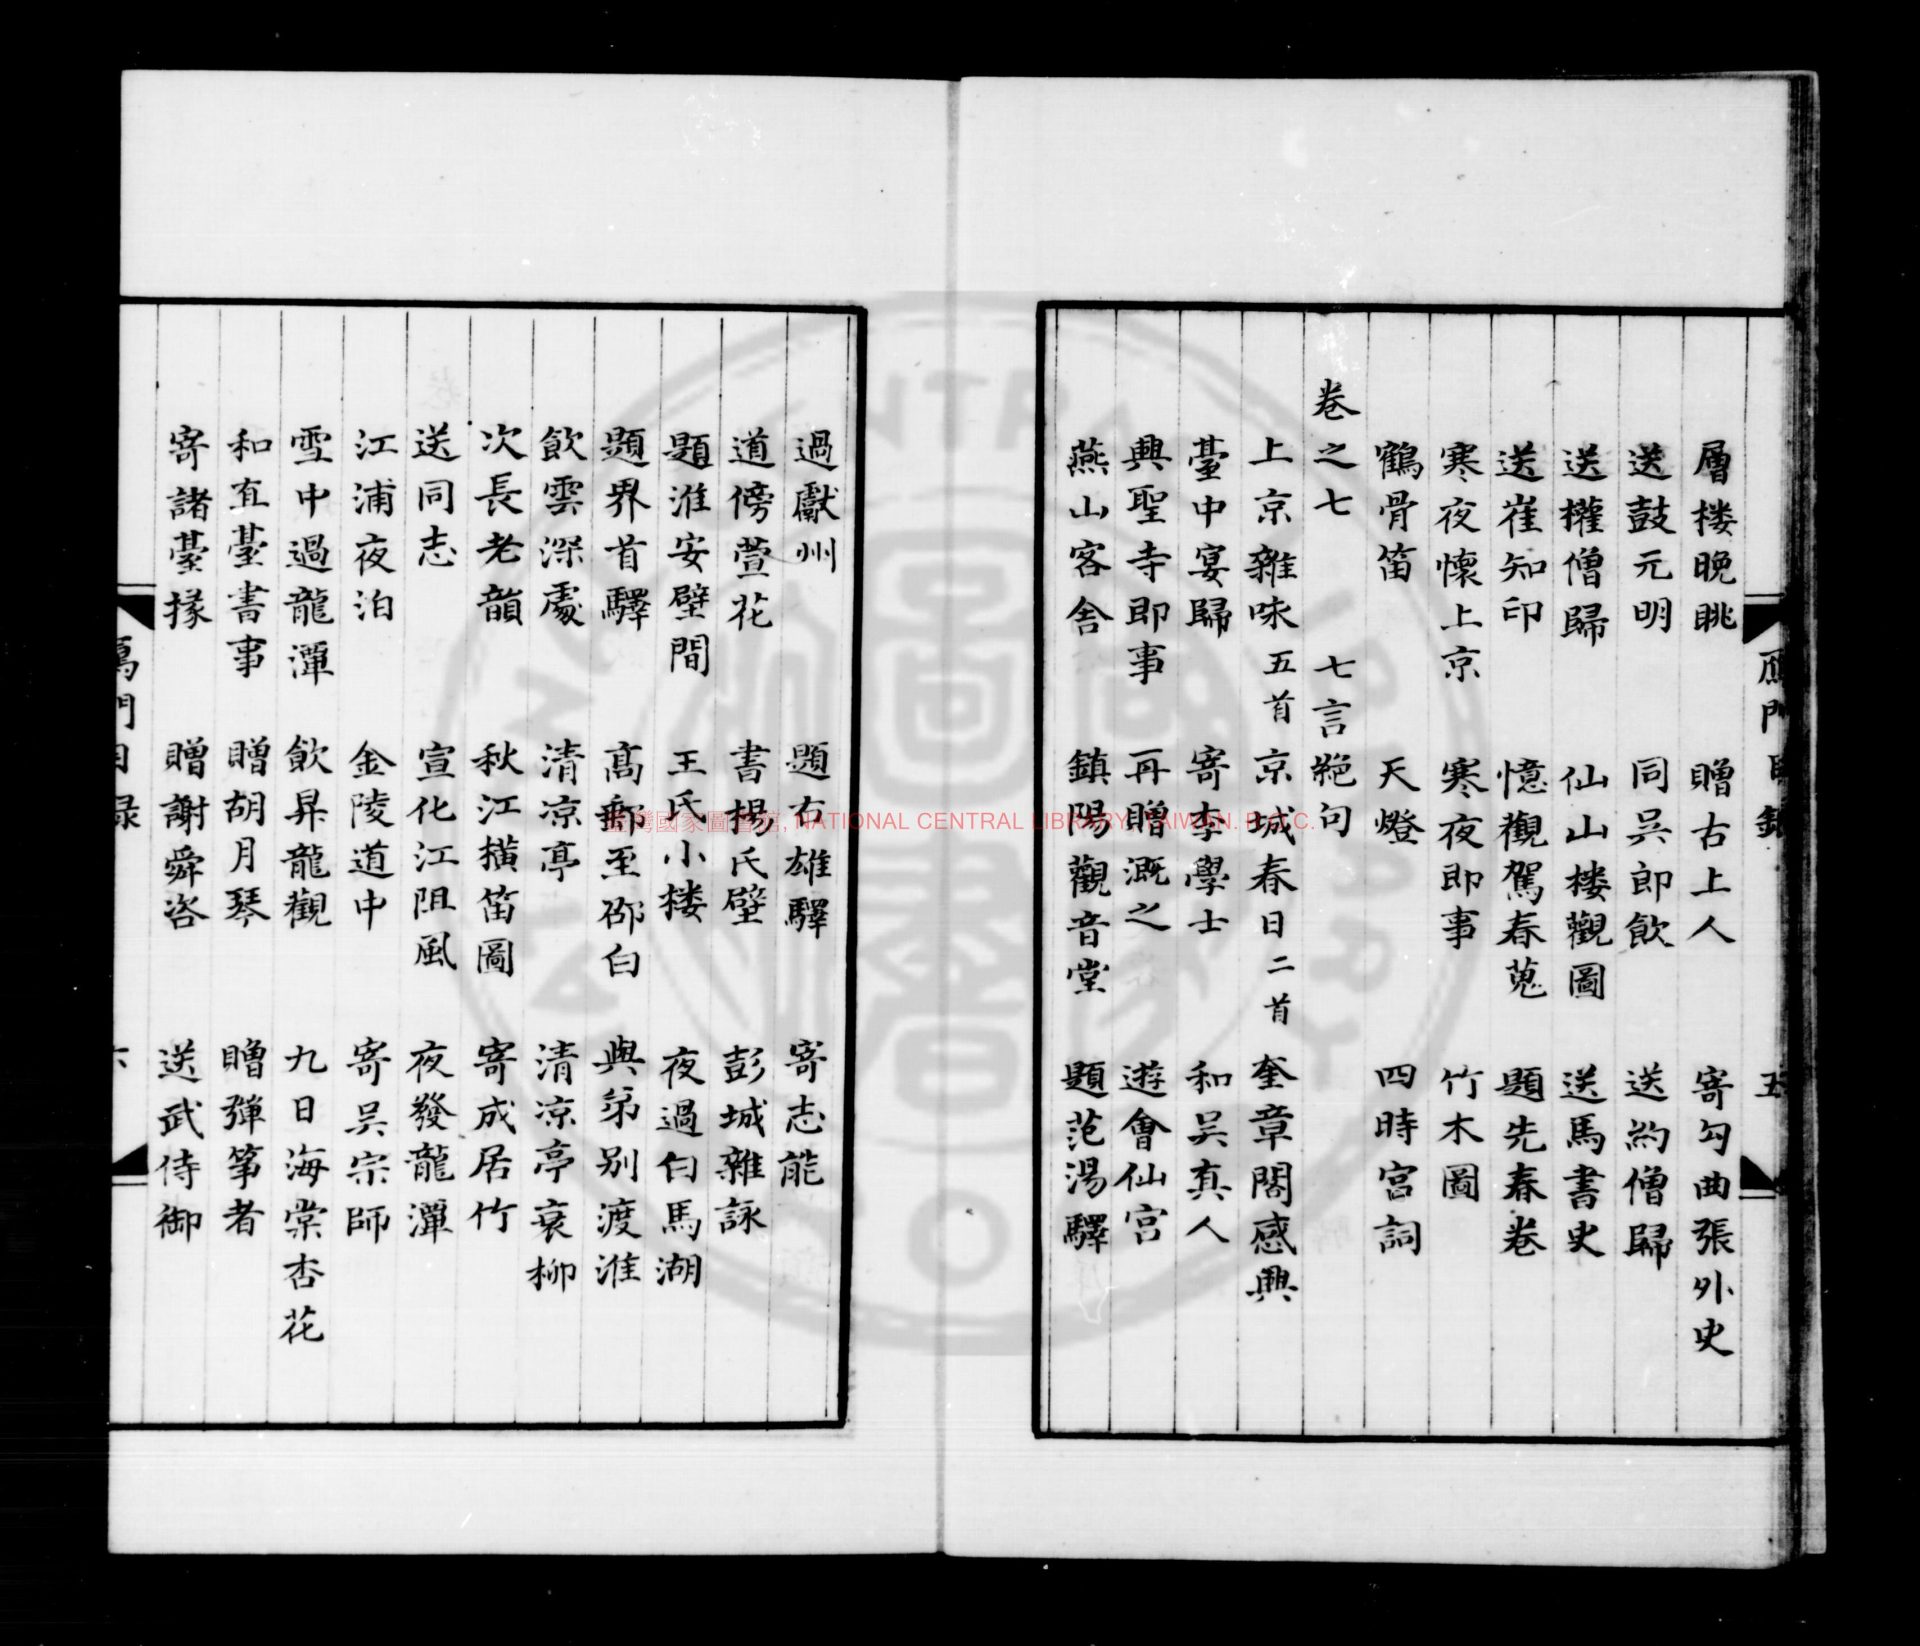 層楼晚眺 贈古上人 寄勾曲張外史
送鼓元明 同吳郎飲 送約僧歸
送權僧歸 仙山楼觀圖 送馬書史
送崔知印 憶觀駕春蒐 題先春卷
寒夜懷上京 寒夜即事 竹木圖
鶴骨笛 天燈 四時宮詞
卷之七 七言絶句
上京雜咏五首 京城春日二首 奎章閣感興
臺中宴歸 寄李學士 和吳真人
興聖寺即事 再贈溉之 遊會仙宮
燕山客舎 鎮陽觀音堂 題范湯驛
過獻州 題古雄驛 寄志能
道傍萱花 書楊氏壁 彭城雜詠
題淮安壁間 王氏小楼 夜過白馬湖
題界首驛 髙郵至邵白 與弟别渡淮
飲雲深處 清凉亭 清凉亭衰柳
次長老韻 秋江横笛圖 寄成居竹
送同志 宣化江阻風 夜發龍潭
江浦夜泊 金陵道中 寄吳宗師
雪中過龍潭 飲昇龍觀 九日海棠杏花
和百臺書事 贈胡月琴 贈彈筝者
寄諸臺掾 贈謝舜咨 送武侍御
門目録
六
臺灣國家圖書館, NATIONAL CENTRAL LIBRARY, TAIWAN. R.O.C.